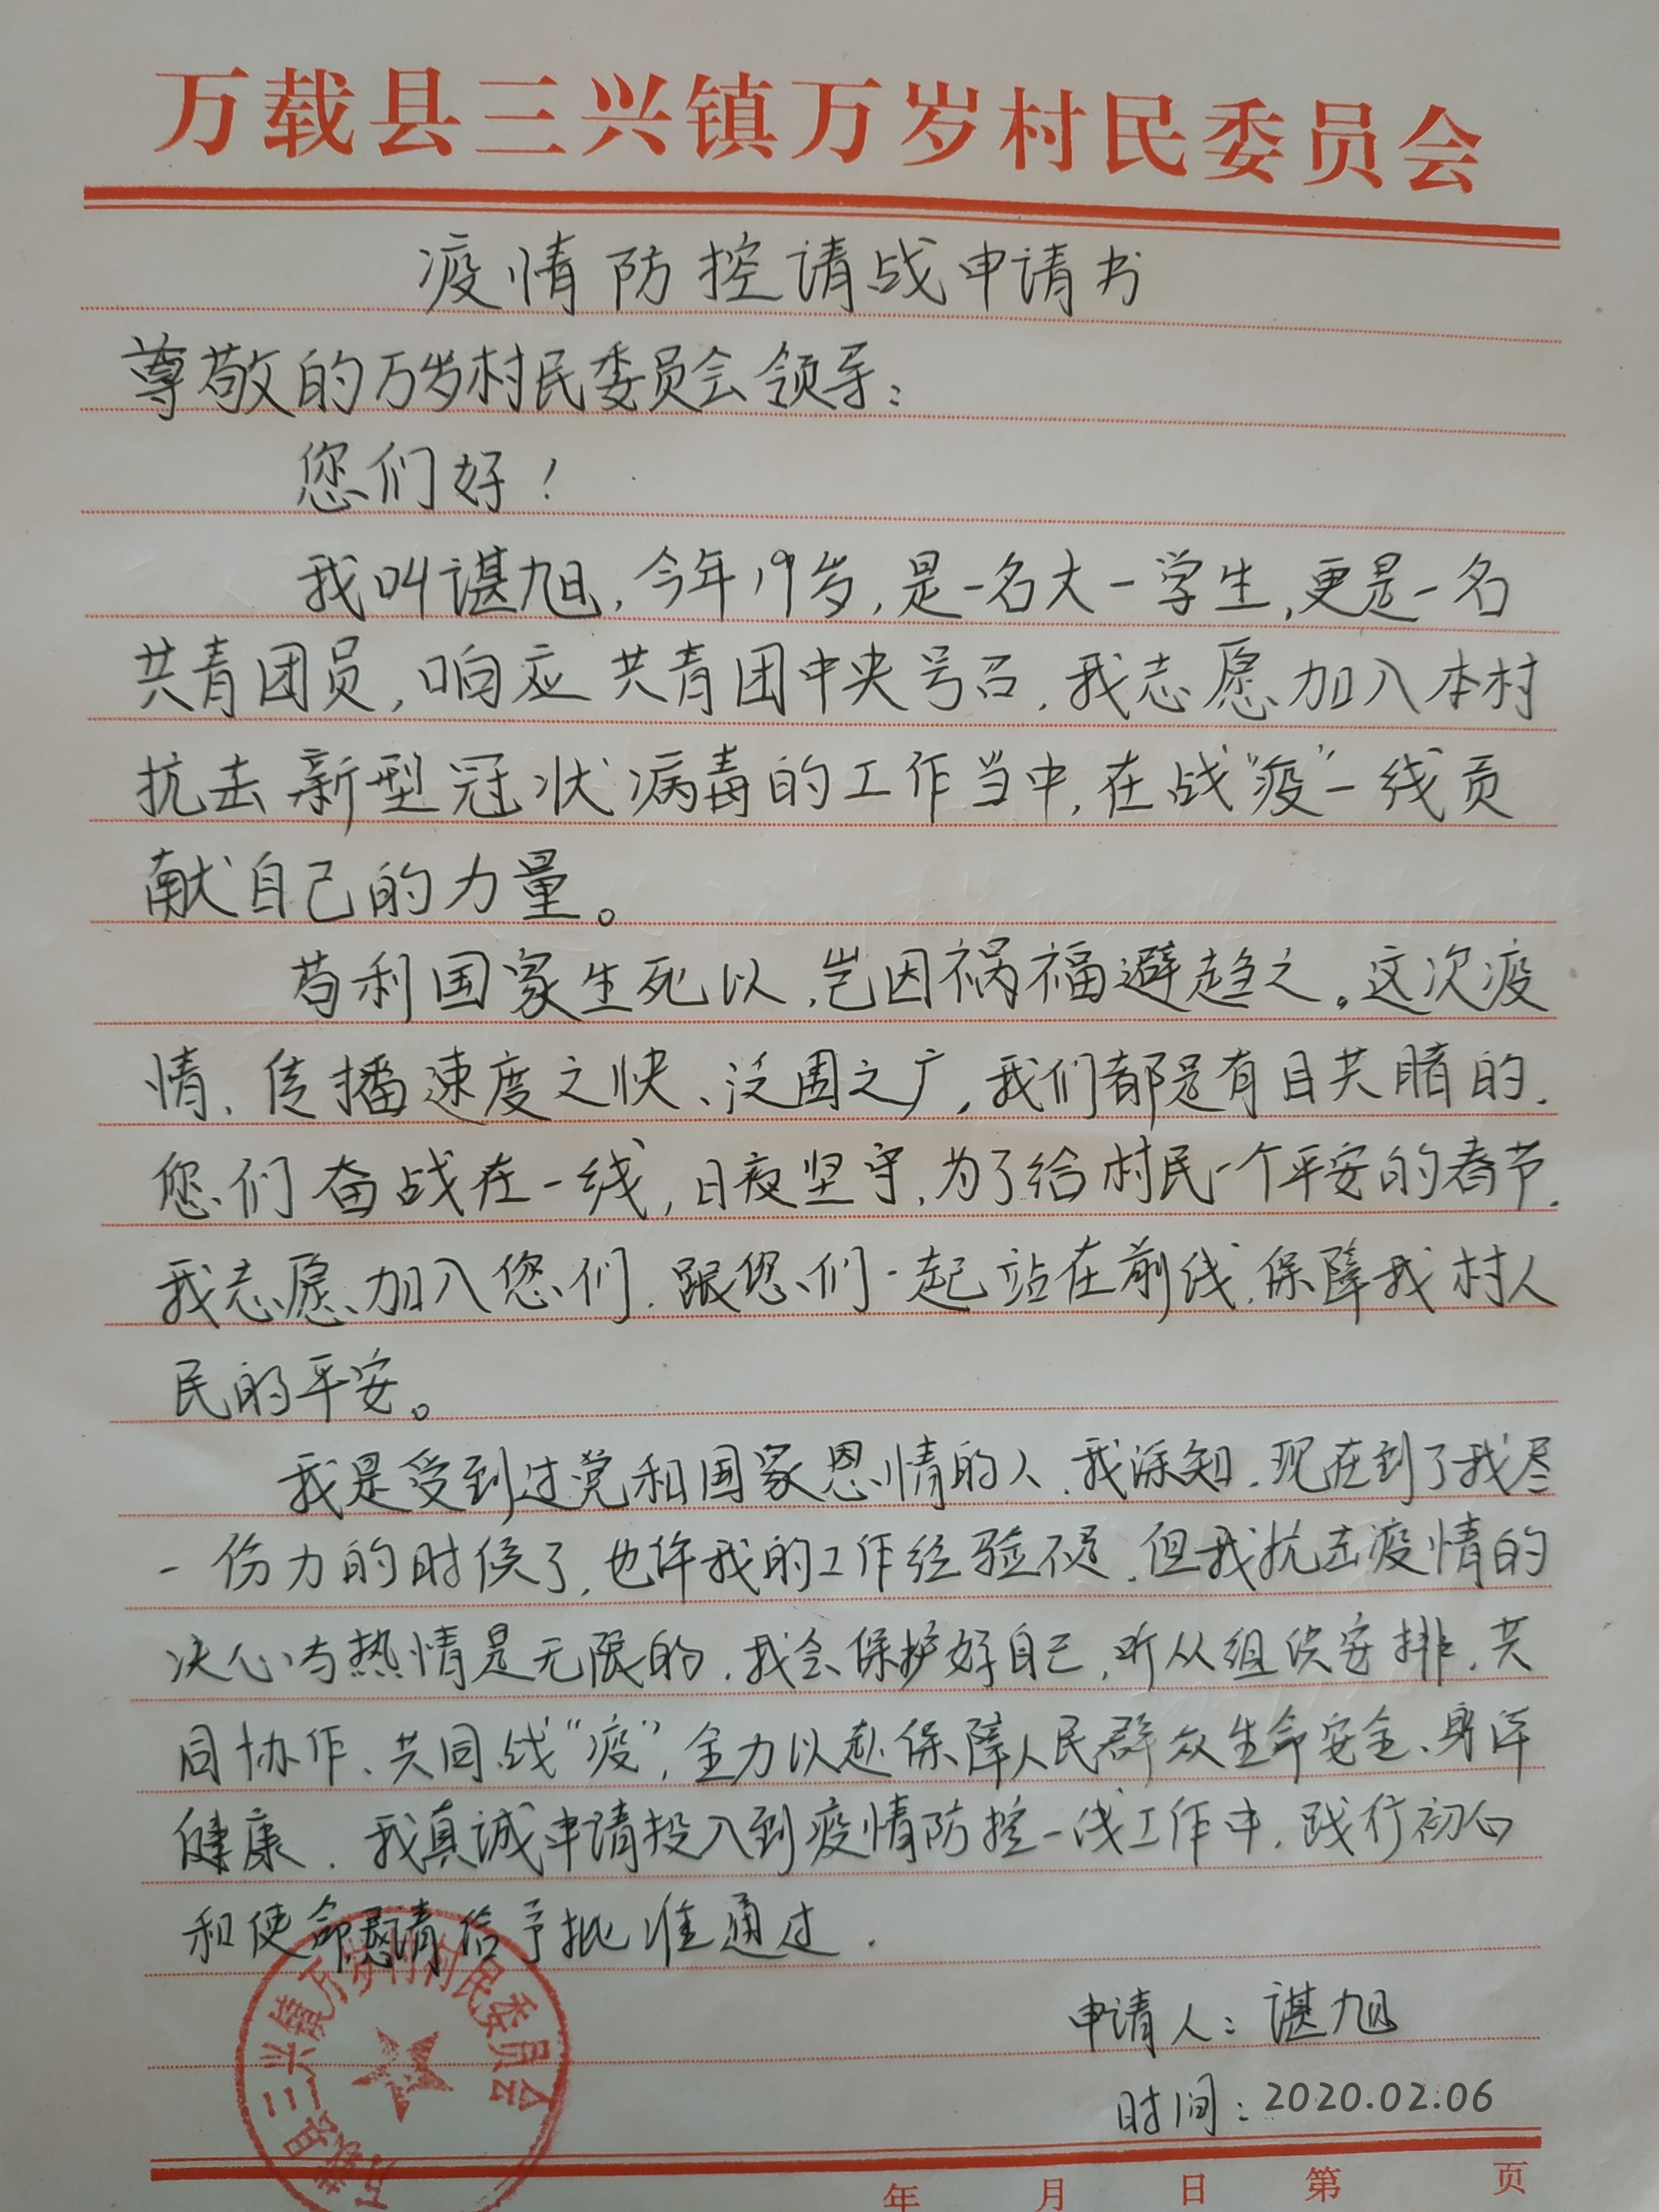 万载县三兴镇万岁村民委员会
疫情防控请战申请书
尊敬的万岁村民委员会领导：
您们好！
我叫谌旭，今年19岁，是一名大一学生，更是一名
共青团员，响应共青团中央号召，我志愿加入本村
抗击新型冠状病毒的工作当中，在战“疫”一线贡
献自己的力量。
苟利国家生死以，岂因祸福避趋之。这次疫
情，传播速度之快、泛围之广，我们都是有目共睹的．
您们奋战在一线，日夜坚守，为了给村民一个平安的春节．
我志愿加入您们，跟您们一起站在前线，保障我村人
民的平安。
我是受到过党和国家恩情的人，我深知，现在到了我尽
一份力的时候了，也许我的工作经验不足，但我抗击疫情的
决心与热情是无限的，我会保护好自己，听从组织安排，共
同协作、共同战“疫”，全力以赴保障人民群众生命安全、身体
健康．我真诚申请投入到疫情防控一线工作中，践行初心
和使命恳请给予批准通过．
申请人：谌旭
时间：2020.02.06
万载县三兴镇万岁村村民委员会
年 月 日 第 页